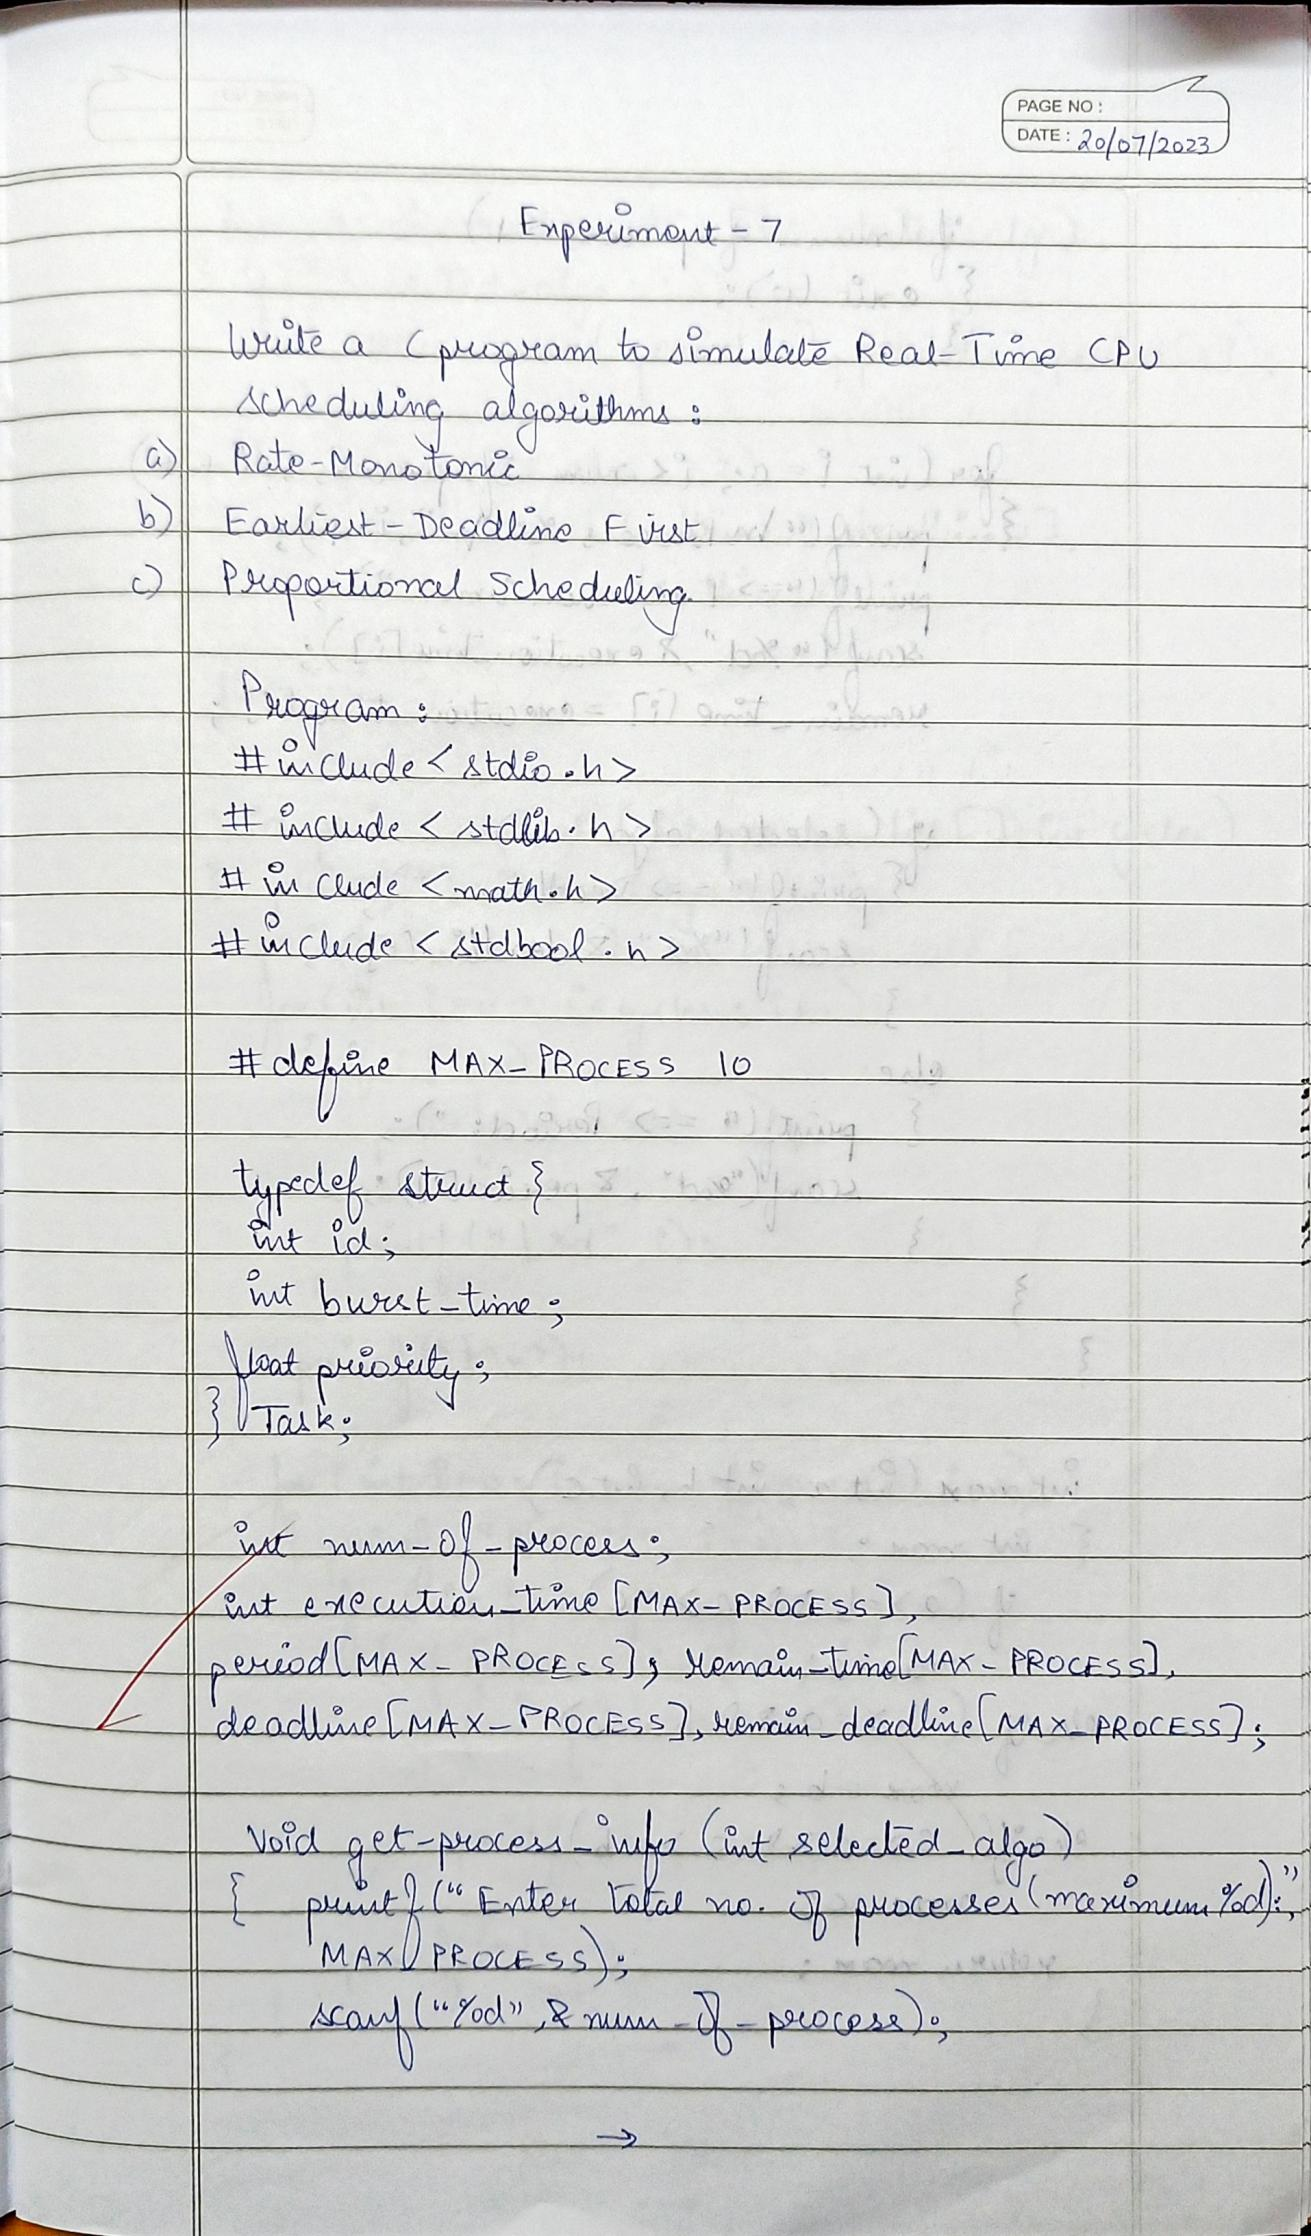 PAGE NO :
DATE : 20/07/2023
Experiment - 7
Write a C program to simulate Real-Time CPU
scheduling algorithms :
a) Rate-Monotonic
b) Earliest-Deadline First
c) Proportional Scheduling
Program :
# include < stdio.h >
# include < stdlib.h >
# include < math.h >
# include < stdbool.h >
# define MAX_PROCESS 10
typedef struct {
int id;
int burst_time;
float priority;
} Task;
int num_of_process;
int execution_time [MAX_PROCESS],
period [MAX_PROCESS], remain_time [MAX_PROCESS],
deadline [MAX_PROCESS], remain_deadline [MAX_PROCESS];
void get_process_info (int selected_algo)
{ printf (“ Enter total no. of processes (maximum %d):”,
MAX_PROCESS);
scanf (“%d”, & num_of_process);
→